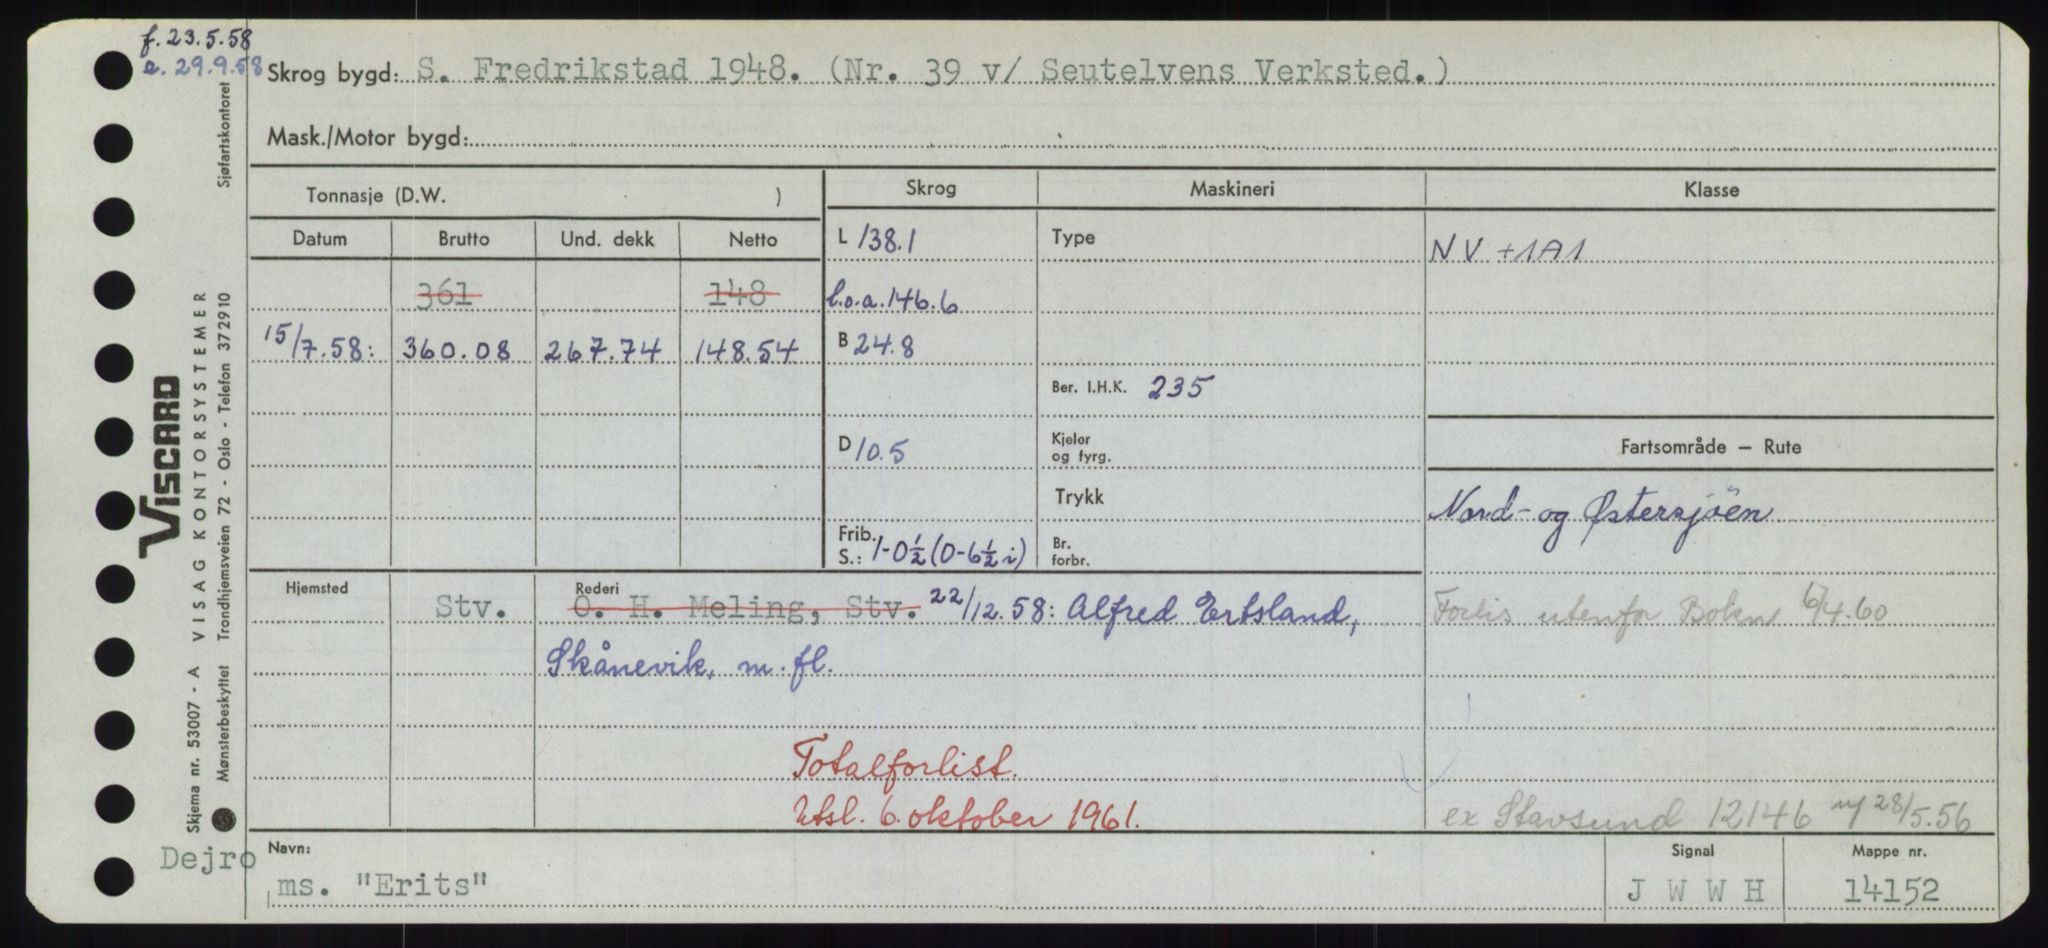 f. 23.5.58
a. 29.9.58
Skrog bygd: S. Fredrikstad 1948. (Nr. 39 v/ Seutelvens Verksted.)
Mask./Motor bygd:
Sjøfartskontoret
Tonnasje (D.W. )
Skrog
Maskineri
Klasse
Datum
Brutto
Und. dekk
Netto
L 138.1
Type
NV +1A1
361
148
l.o.a. 146.6
15/7.58:
360.08
267.74
148.54
B 24.8
Ber. I.H.K. 235
D 10.5
Kjeler
og fyrg.
Fartsområde — Rute
Trykk
Nord- og Østersjöen
Frib.
S.: 1-0½ (0-6½ i)
Br.
forbr.
Hjemsted
Stv.
Rederi
O. H. Meling, Stv. 22/12.58: Alfred Ertsland,
Forlis utenfor Bokn 6/4.60
Skånevik, m. fl.
Totalforlist.
Utsl. 6. oktober 1961.
ex Stavsund 12146 28/5.56
Dejro
Navn:
ms. "Erits"
Signal
J W W H
Mappe nr.
14152
VISCARD
Skjema nr. 53007 - A VISAG KONTORSYSTEMER
Mønsterbeskyttet Trondhjemsveien 72 - Oslo - Telefon 372910